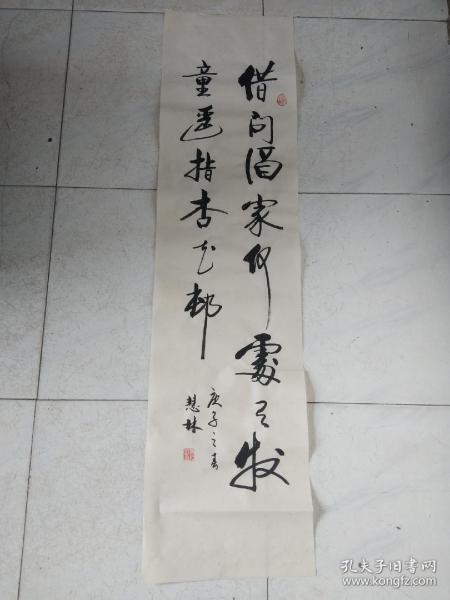 借问酒家何處有牧
童遥指杏花邨
庚子之春
慧林
孔夫子旧书网
www.kongfz.com